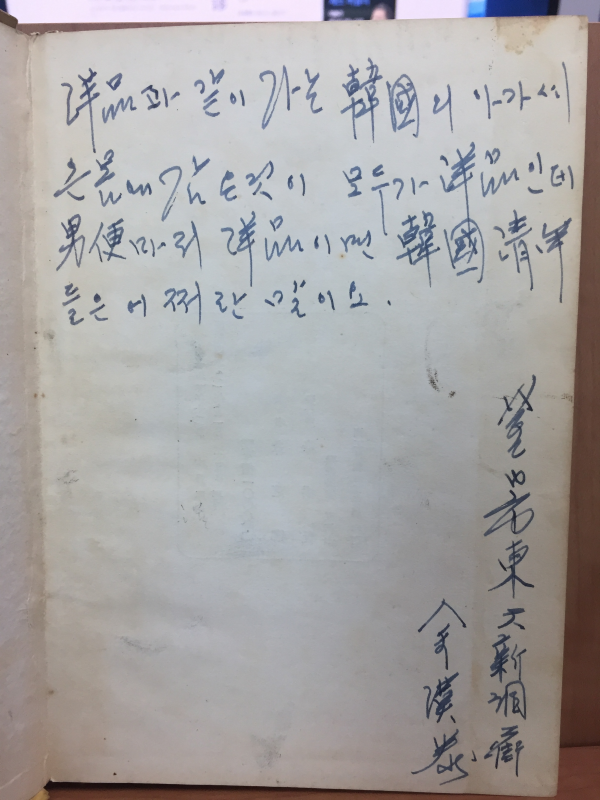 洋品과 같이 가는 韓國의 아가씨
은 몸에 감은것이 모두가 洋品인데
男便마저 洋品이면 韓國 清年
들은 어쩌란 말이오.
東大新洞
漢泰